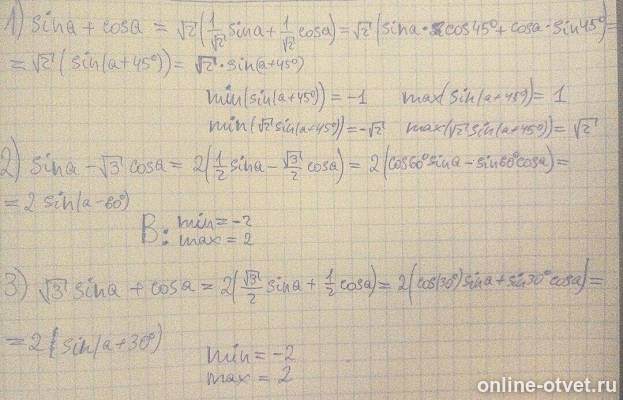 1) sina + cosa = √2(1/√2 sina + 1/√2 cosa) = √2(sina·cos45° + cosa·sin45°) =
= √2(sin(a+45°)) = √2·sin(a+45°)
min(sin(a+45°)) = -1 max(sin(a+45°)) = 1
min(√2 sin(a+45°)) = -√2 max(√2 sin(a+45°)) = √2
2) sina - √3 cosa = 2(1/2 sina - √3/2 cosa) = 2(cos60° sina - sin60° cosa) =
= 2 sin(a-60°)
В: min = -2
max = 2
3) √3 sina + cosa = 2(√3/2 sina + 1/2 cosa) = 2(cos(30°) sina + sin30° cosa) =
= 2(sin(a+30°)
min = -2
max = 2
online-otvet.ru